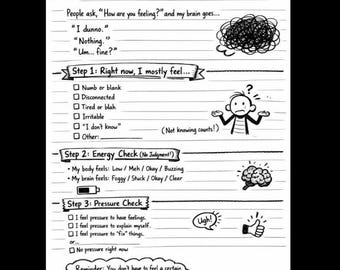 People ask, "How are you feeling?" and my brain goes...
"I dunno."
"Nothing."
"Um... fine?"
Step 1: Right now, I mostly feel...
Numb or blank
Disconnected
Tired or blah
Irritable
"I don't know"
(Not knowing counts!)
Other:
?
Step 2: Energy Check (No Judgment!)
• My body feels: Low / Meh / Okay / Buzzing
• My brain feels: Foggy / Stuck / Okay / Clear
Step 3: Pressure Check
I feel pressure to have feelings.
I feel pressure to explain myself.
I feel pressure to "fix" things.
or...
No pressure right now
Ugh!
Reminder: You don't have to feel a certain